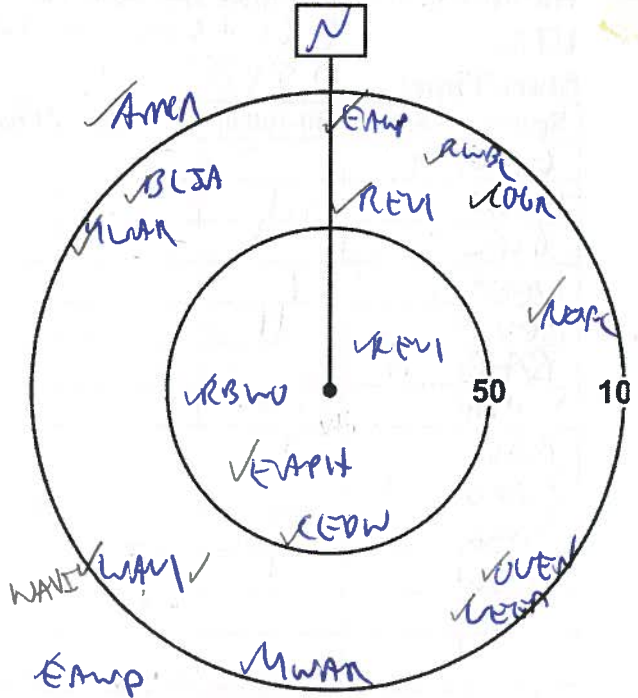 N
AMCR
EAWP
RWBL
BLJA
REVI
COGR
YWAR
NOFL
REVI
RBWO
50
10
EAPH
CEDW
WAVI
WAVI
OVEN
VEER
EAWP
MWAR